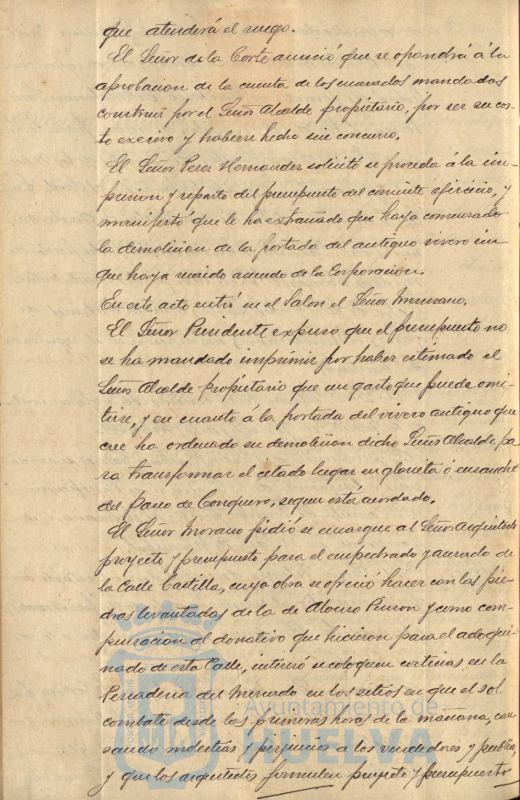 que atenderá el ruego.
El Señor de la Corte anunció que se opondrá á la
aprobacion de la cuenta de los mandados
construir por el Señor Alcalde propietario, por ser su cos-
to excesivo y haberse hecho sin concurso.
El Señor Perez Hernandez solicitó se proceda á la im-
presion y reparto del presupuesto del corriente ejercicio, y
manifestó que le ha extrañado que haya comenzado
la demolicion de la portada del antiguo vivero sin
que haya recaido acuerdo de la Corporacion.
En este acto entró en el Salon el Señor
El Señor Presidente expuso que el presupuesto no
se ha mandado imprimir por haber estimado el
Señor Alcalde propietario que es un gasto que puede omi-
tirse, y en cuanto á la portada del vivero antiguo que
cree ha ordenado su demolicion dicho Señor Alcalde pa-
ra transformar el citado lugar en glorieta ó ensanche
del Paseo de Conquero, segun está acordado.
El Señor Morano pidió se encargue al Señor Arquitecto
proyecto y presupuesto para el empedrado y acerado de
la Calle Castilla, cuya obra se ofreció hacer con las pie-
dras levantadas de la de Alonso Pinzon y como com-
pensacion al donativo que hicieron para el adoqui-
nado de esta Calle, interesó se coloquen cortinas en la
Pescaderia del Mercado en los sitios en que el sol
combate desde las primeras horas de la mañana, cau-
sando molestias y perjuicios a los vendedores y publico,
y que los arquitectos formulen proyecto y presupuesto
Ayuntamiento de
HUELVA